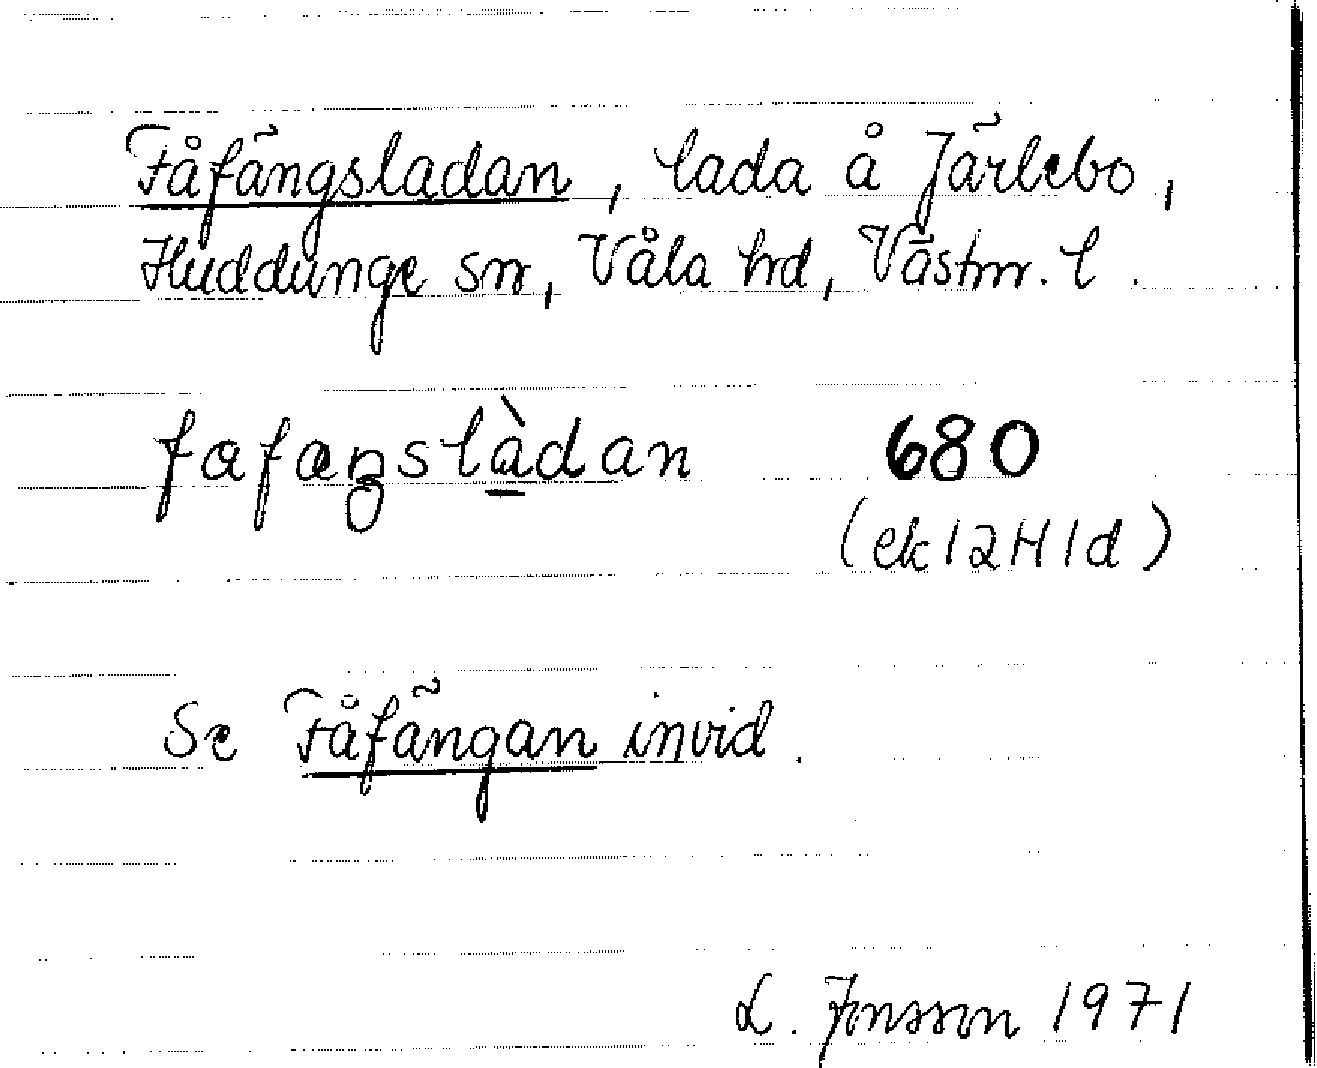 Fåfängsladan, lada å Järlebo,
Huddunge sn, Våla hd, Västm. l.
fafæŋslàdan 680
(ek 12H1d)
Se Fåfängan invid.
L. Jonsson 1971